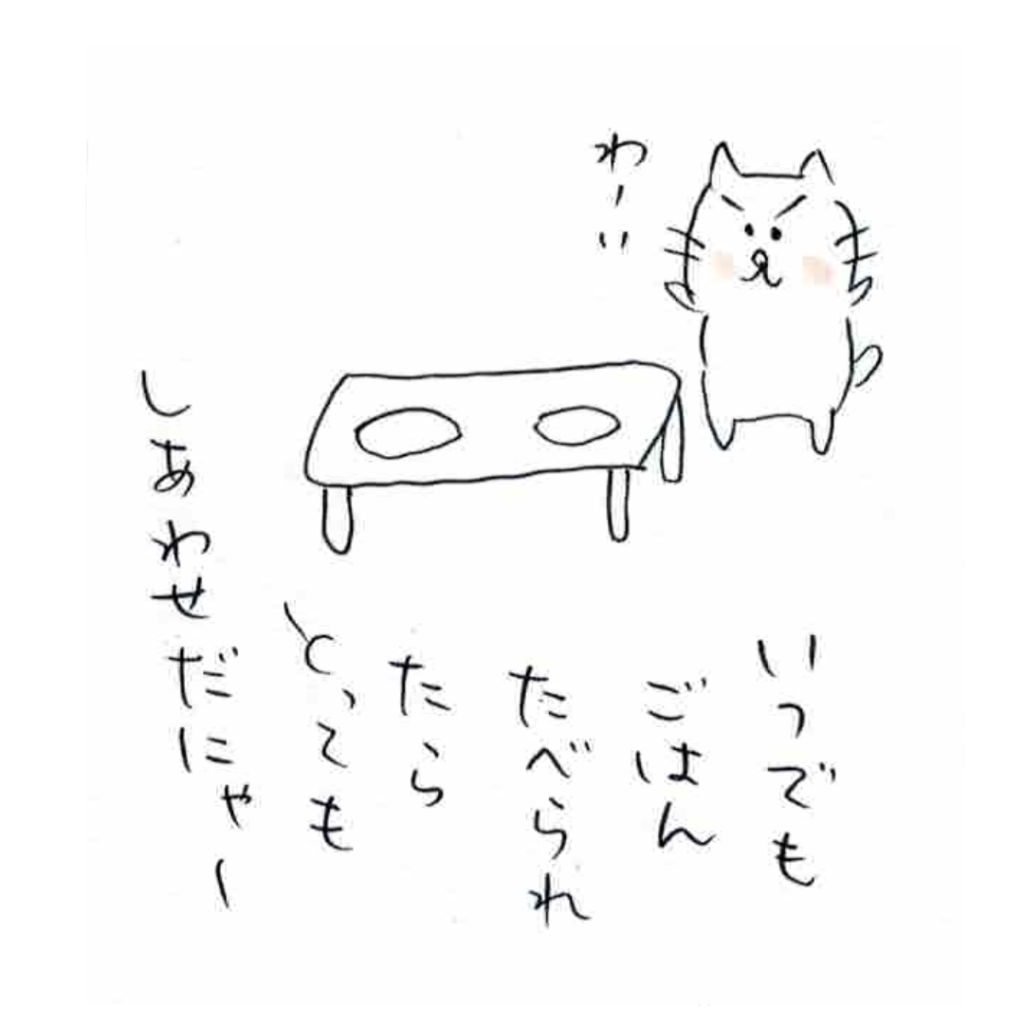 わーい
いつでも
ごはん
たべられ
たら
とっても
しあわせだにゃー